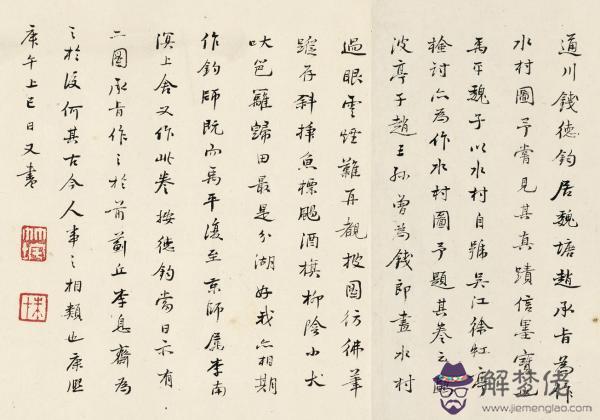 通川錢德鈞居魏塘趙承旨爲作
水村圖予嘗見其真蹟信墨寶也
禹平魏子以水村自號吳江徐虹亭
檢討亦為作水村圖予題其卷云風
波亭子趙王孫曾為錢郎畫水村
過眼雲煙難再覩披圖仿佛筆
蹤存斜插魚標颺酒旗柳陰小犬
吠笆籬歸田最是分湖好我亦相期
作釣師既而禹平復至京師屬李南
溟上舍又作此卷按德鈞當日亦有
二圖承旨作之於前薊丘李息齋為
之於後何其古今人事之相類也康熙
庚午上巳日又書
解梦佬
www.jiemenglao.com